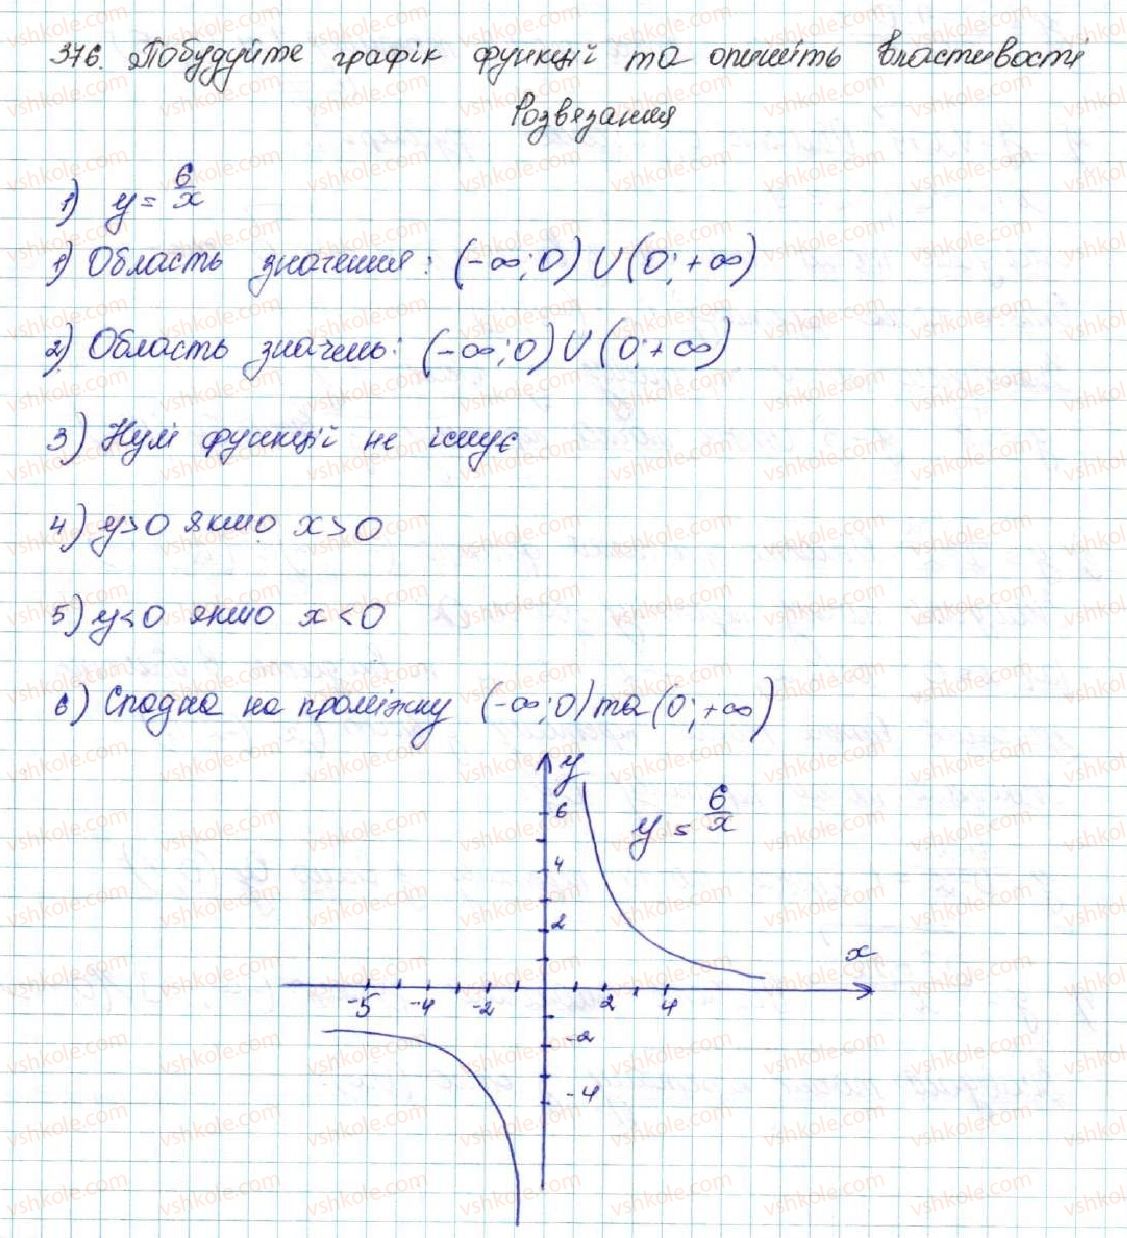 376. Побудуйте графік функції та опишіть властивості
Розвязання
1) y = 6/x
1) Область значення: (-∞; 0) ∪ (0; +∞)
2) Область значень: (-∞; 0) ∪ (0; +∞)
3) Нулі функції не існує
4) y > 0 якшо x > 0
5) y < 0 якшо x < 0
6) Спадна на проміжку (-∞; 0) та (0; +∞)
y
6
y = 6/x
4
2
x
-5 -4 -2 2 4
-2
-4